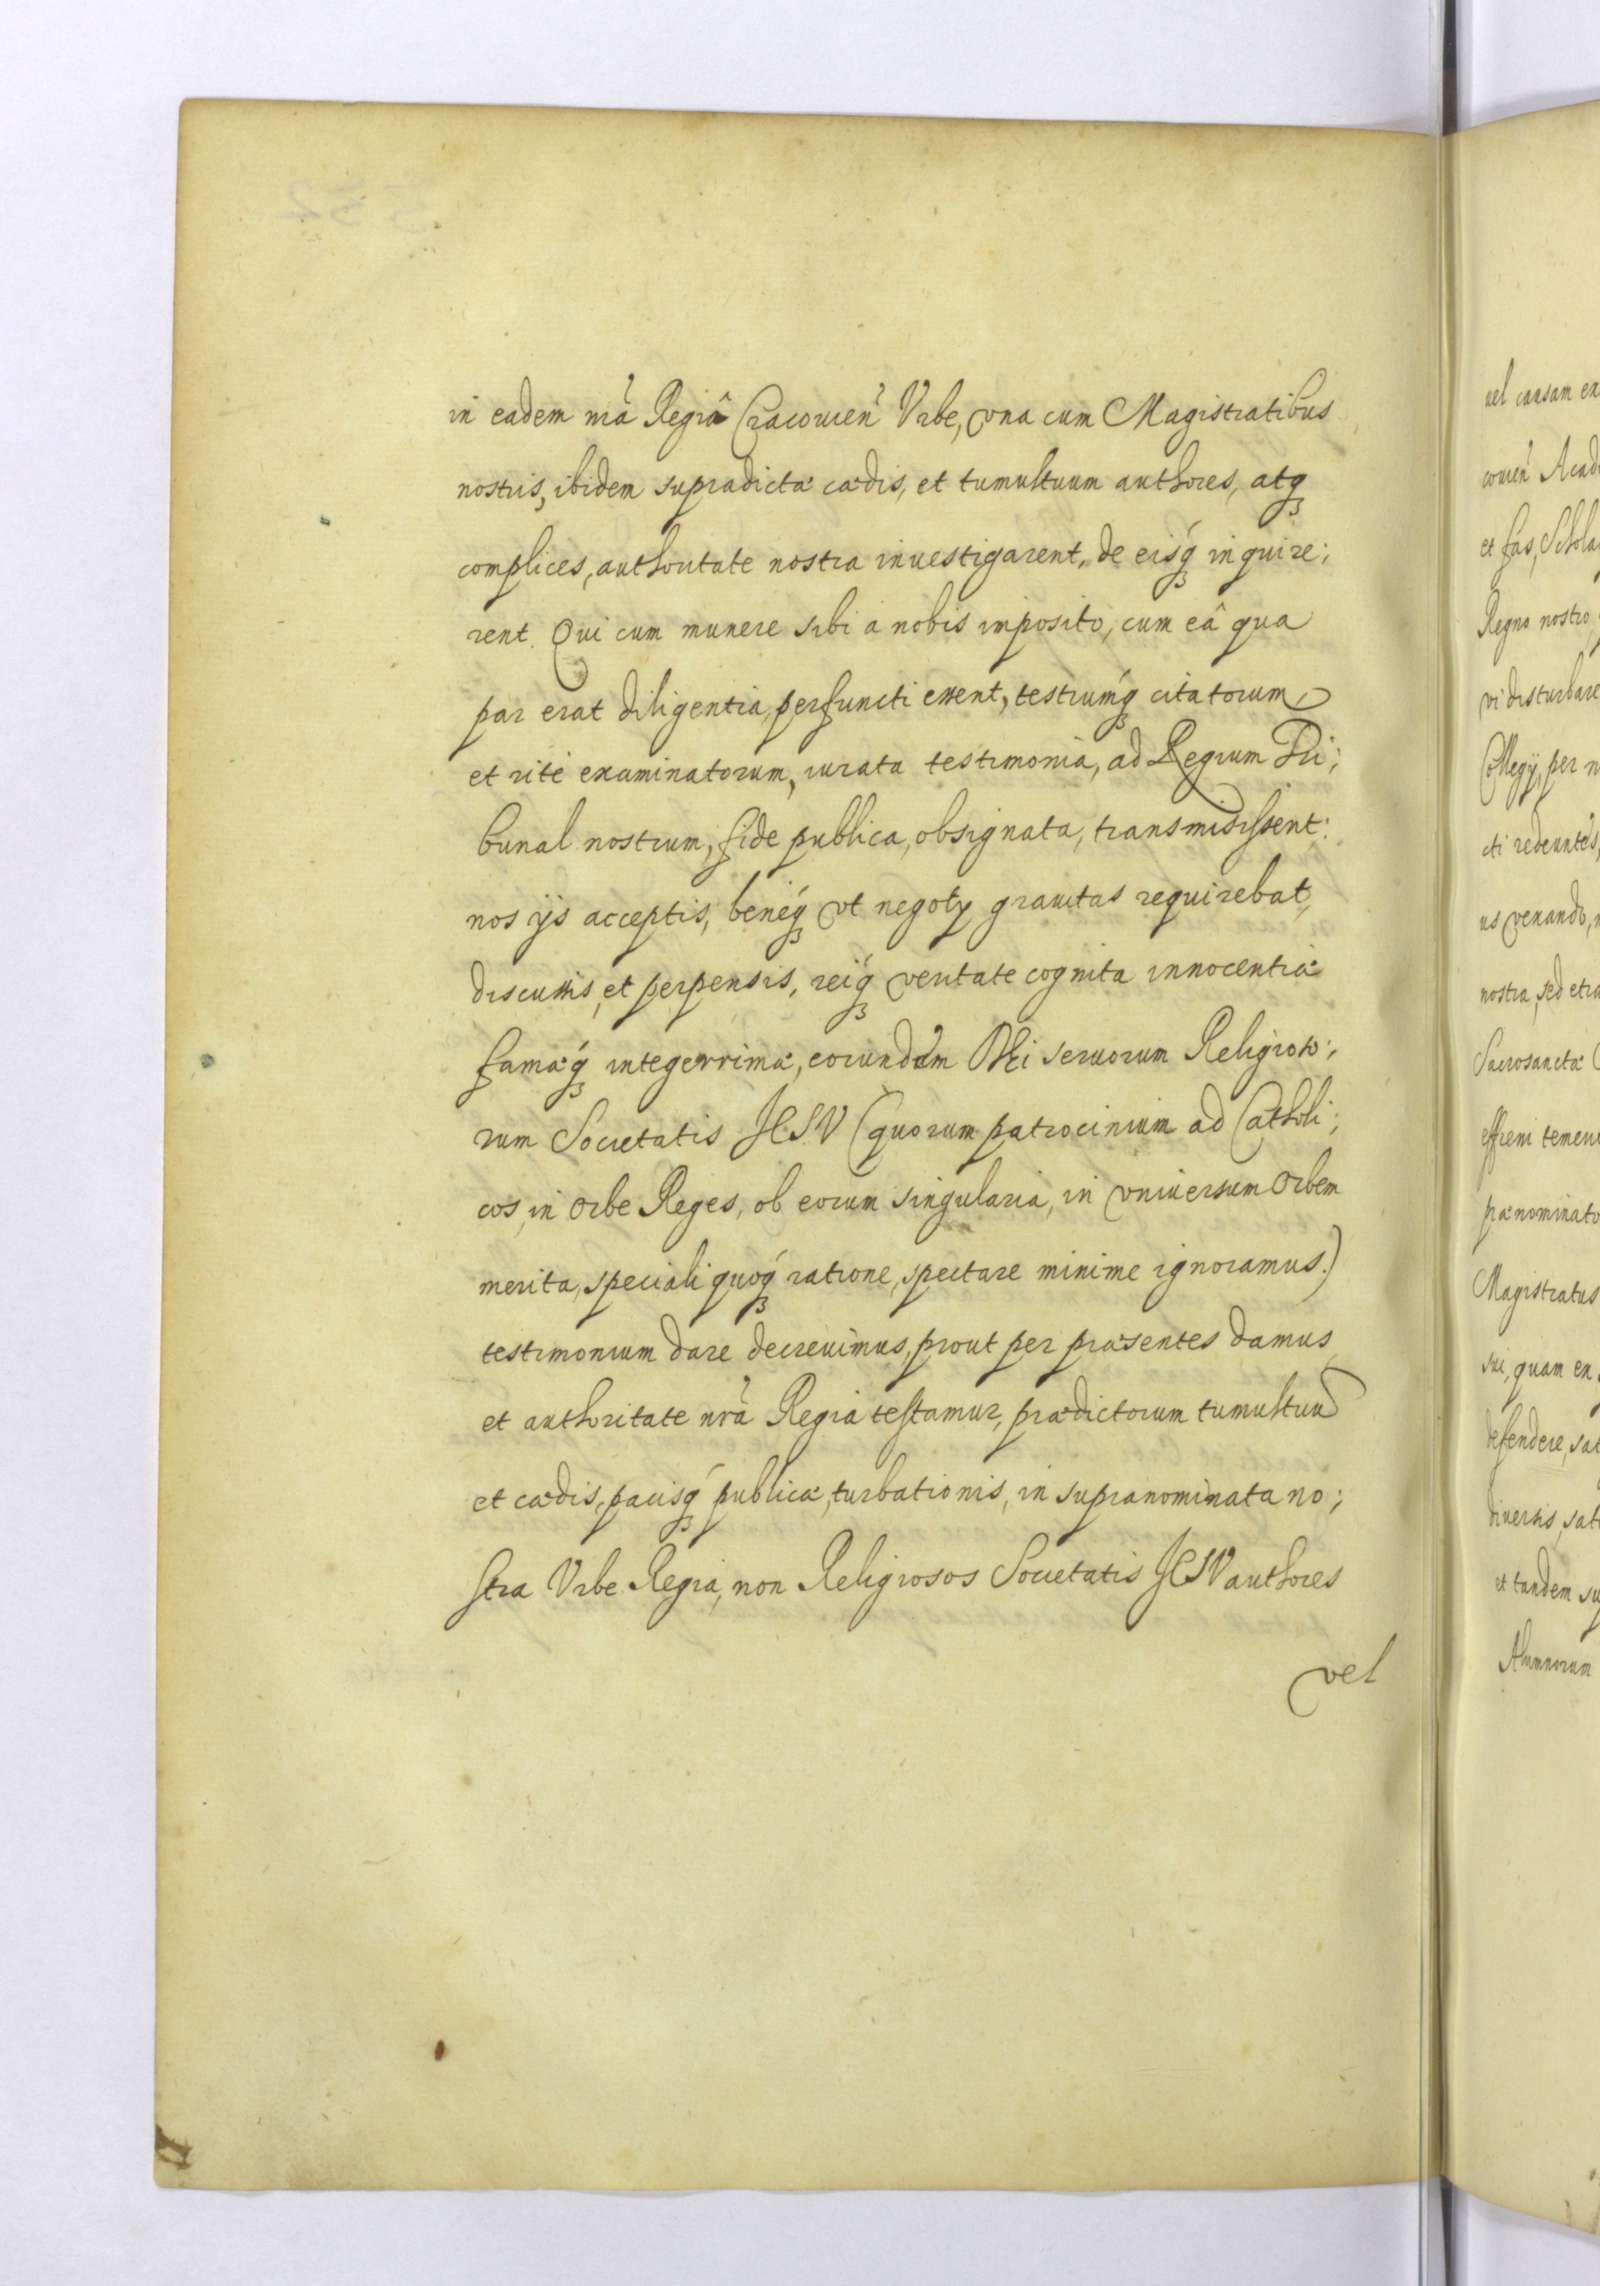 in eadem nrâ Regiâ Cracouien̄ Vrbe, vna cum Magistratibus
nostris, ibidem supradictæ cædis, et tumultuum authores, atqꝫ
complices, authoritate nostra inuestigarent, de eisq́ꝫ inquire;
rent. Qui cum munere sibi a nobis imposito, cum eâ qua
par erat diligentia, perfuncti essent, testiumq́ꝫ citatorum,
et ritè examinatorum, iurata testimonia, ad Regium Tri;
bunal nostrum, fide publica, obsignata, transmisissent:
nos ijs acceptis, beneq́ꝫ vt negotÿ grauitas requirebat,
discussis, et perpensis, reiq́ꝫ veritate cognita innocentiæ
famæq́ꝫ integerrimæ, eorundem Dei seruorum Religioso;
rum Societatis JESV (quorum patrocinium ad Catholi;
cos, in Orbe Reges, ob eorum singularia, in vniuersum Orbem
merita, speciali quoq́ꝫ ratione, spectare minime ignoramus.)
testimonium dare decreuimus, prout per præsentes damus
et authoritate nrâ Regia testamur, prædictorum tumultuū
et cædis, pacisq́ꝫ publicæ, turbationis, in supranominata no;
stra Vrbe Regia, non Religiosos Societatis JESV authores
vel
vel causam
couien̄
et fas,
Regno nostro
vi disturbare
Collegÿ, per
cti redeuntes,
us venando,
nostra, sed
Sacrosanctæ
prænominato
Magistratus
sui, quam
defendere,
diuersis,
et tandem
Alumnorum